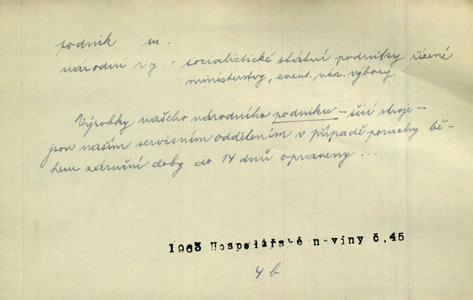 podnik m.
národní p : socialistické státní podniky řízené
ministerstvy, event. nár. výbory
Výrobky našeho národního podniku – šicí stroje –
jsou naším servisním oddělením v případě poruchy bě-
hem záruční doby do 14 dnů opraveny ...
1963 Hospodářské noviny č.45
4 b